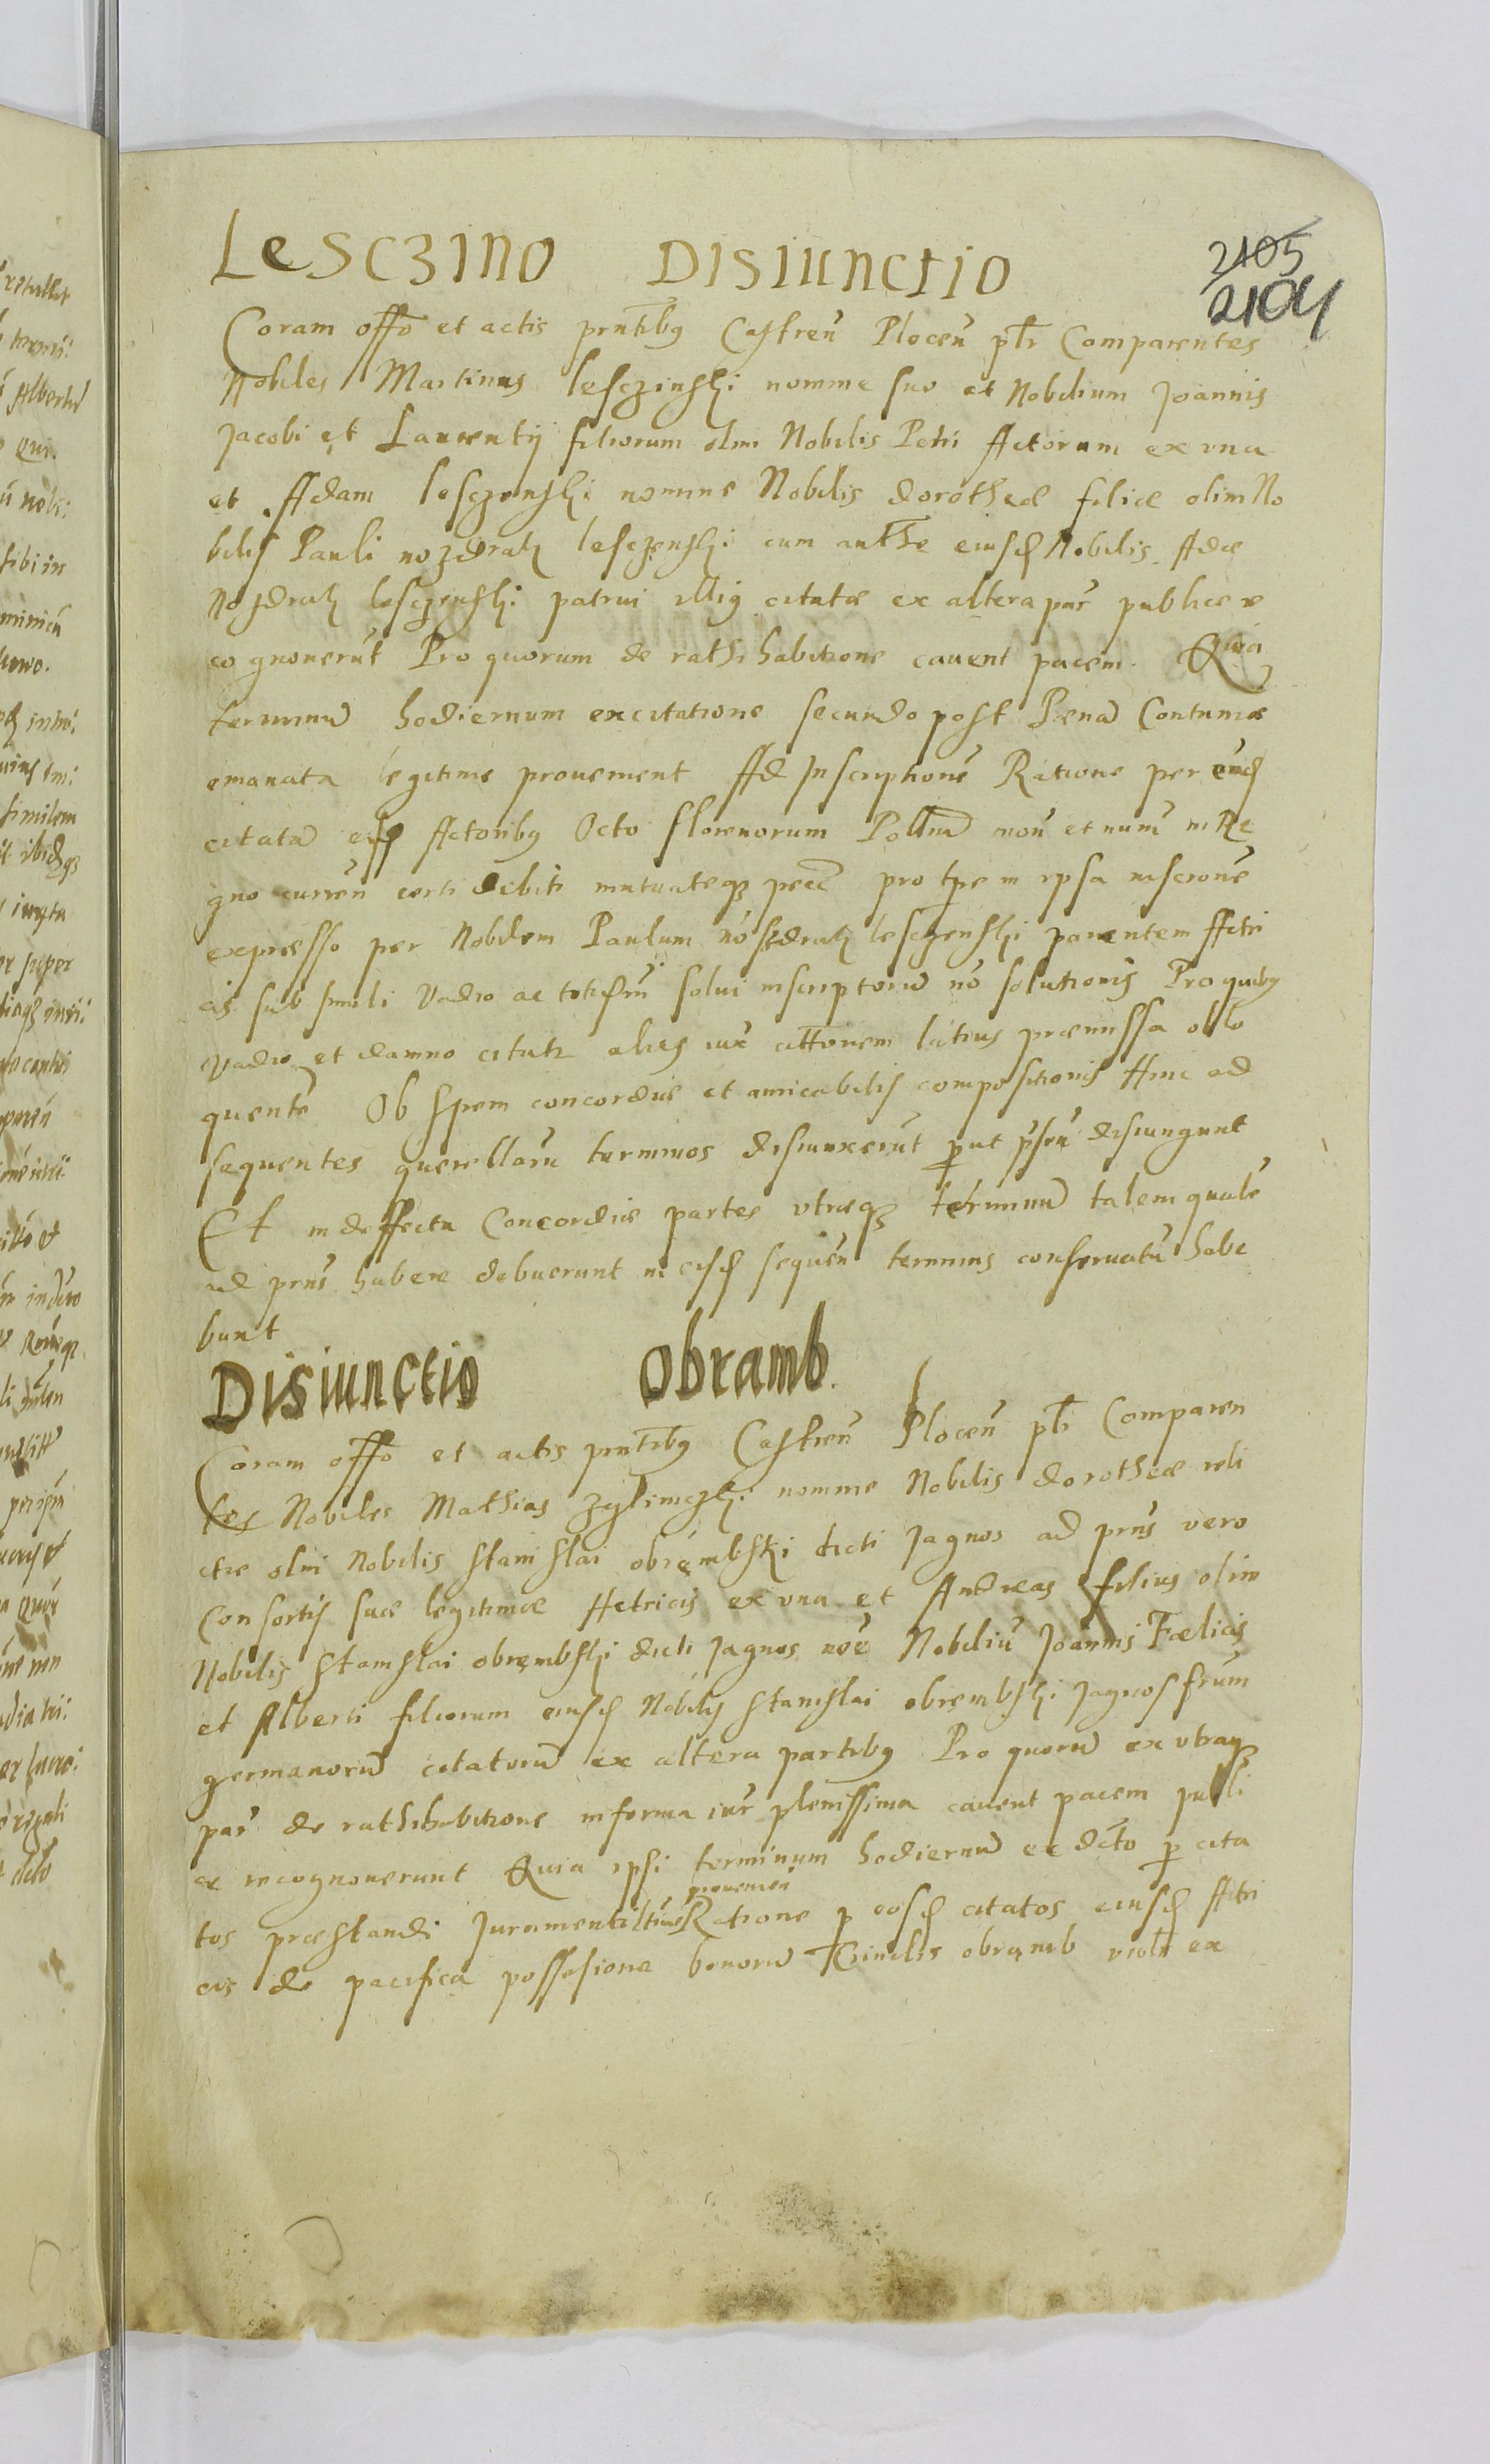 Lesczino Disiunctio
2105
2104
Coram offo et actis prntibq Castren Plocen ptr Comparentes
Nobiles Martinus lesczinski nomine suo et Nobilium Joannis
Jacobi et Laurentij filiorum olim Nobilis Petri Actorum ex una
et Adam lesczenski nomine Nobilis dorotheæ filiæ olim No
bilis Pauli nozdrak lesczenski cum authe eiusd Nobilis Adæ
Nozdrak lesczenski patrui illiq citatæ ex altera par publice re
cognouerut Pro quorum de rathihabitione cauent pacem. Quia
terminu hodiernum ex citatione secundo post Pœna Contumæ
emanata legitime prouenient Ad Inscriptione Ratione per eand
citata eisd Actoribq Octo florenorum Pollniu mon et num in Re
gno curren certi debiti mutuateq pecc pro tpre in ipsa inscrione
expresso per Nobilem Paulum nosdrak lesczenski parentem
cis sub simili Vadio ac solui inscriptoru no solutionis Pro quibq
vadio et damno citate alias iux cittionem latius præmissa oblo
quente Ob spem concordiæ et amicabilis compositionis Hinc ad
sequentes querellaru terminos disiunxerut put pnsen disiungunt
Et in deffectu Concordiæ partes utræq terminu talem quale
ad pns habere debuerunt in eisd sequen terminis conseruatu habe
bunt
Disiunctio Obramb.
Coram offo et actis prntibq Castren Plocen ptr Comparen
tes Nobiles Mathias zglinczki nomine Nobilis dorotheæ reli
ctæ olim Nobilis stanislai obrembski dicti Jagnos ad prns vero
Consortis suæ legitimæ Actricis ex una et Andreas filius olim
Nobilis Stanislai obrembski dicti Jagnos noe Nobiliu Joannis Fælicis
et Alberti filiorum eiusd Nobilis stanislai obrembski Jagnos frum
germanoru citatoru ex altera partibq Pro quoru ex utraq
par de rathihabitione in forma iur plenissima cauent pacem publi
ce recognouerunt Quia ipsi terminum hodiernu ex dicto p cita
prouenien
tos præstandi Juramenti ltime Ratione p eosd citatos eiusd Actri
cis de pacifica possesione bonoru obramb violn ex